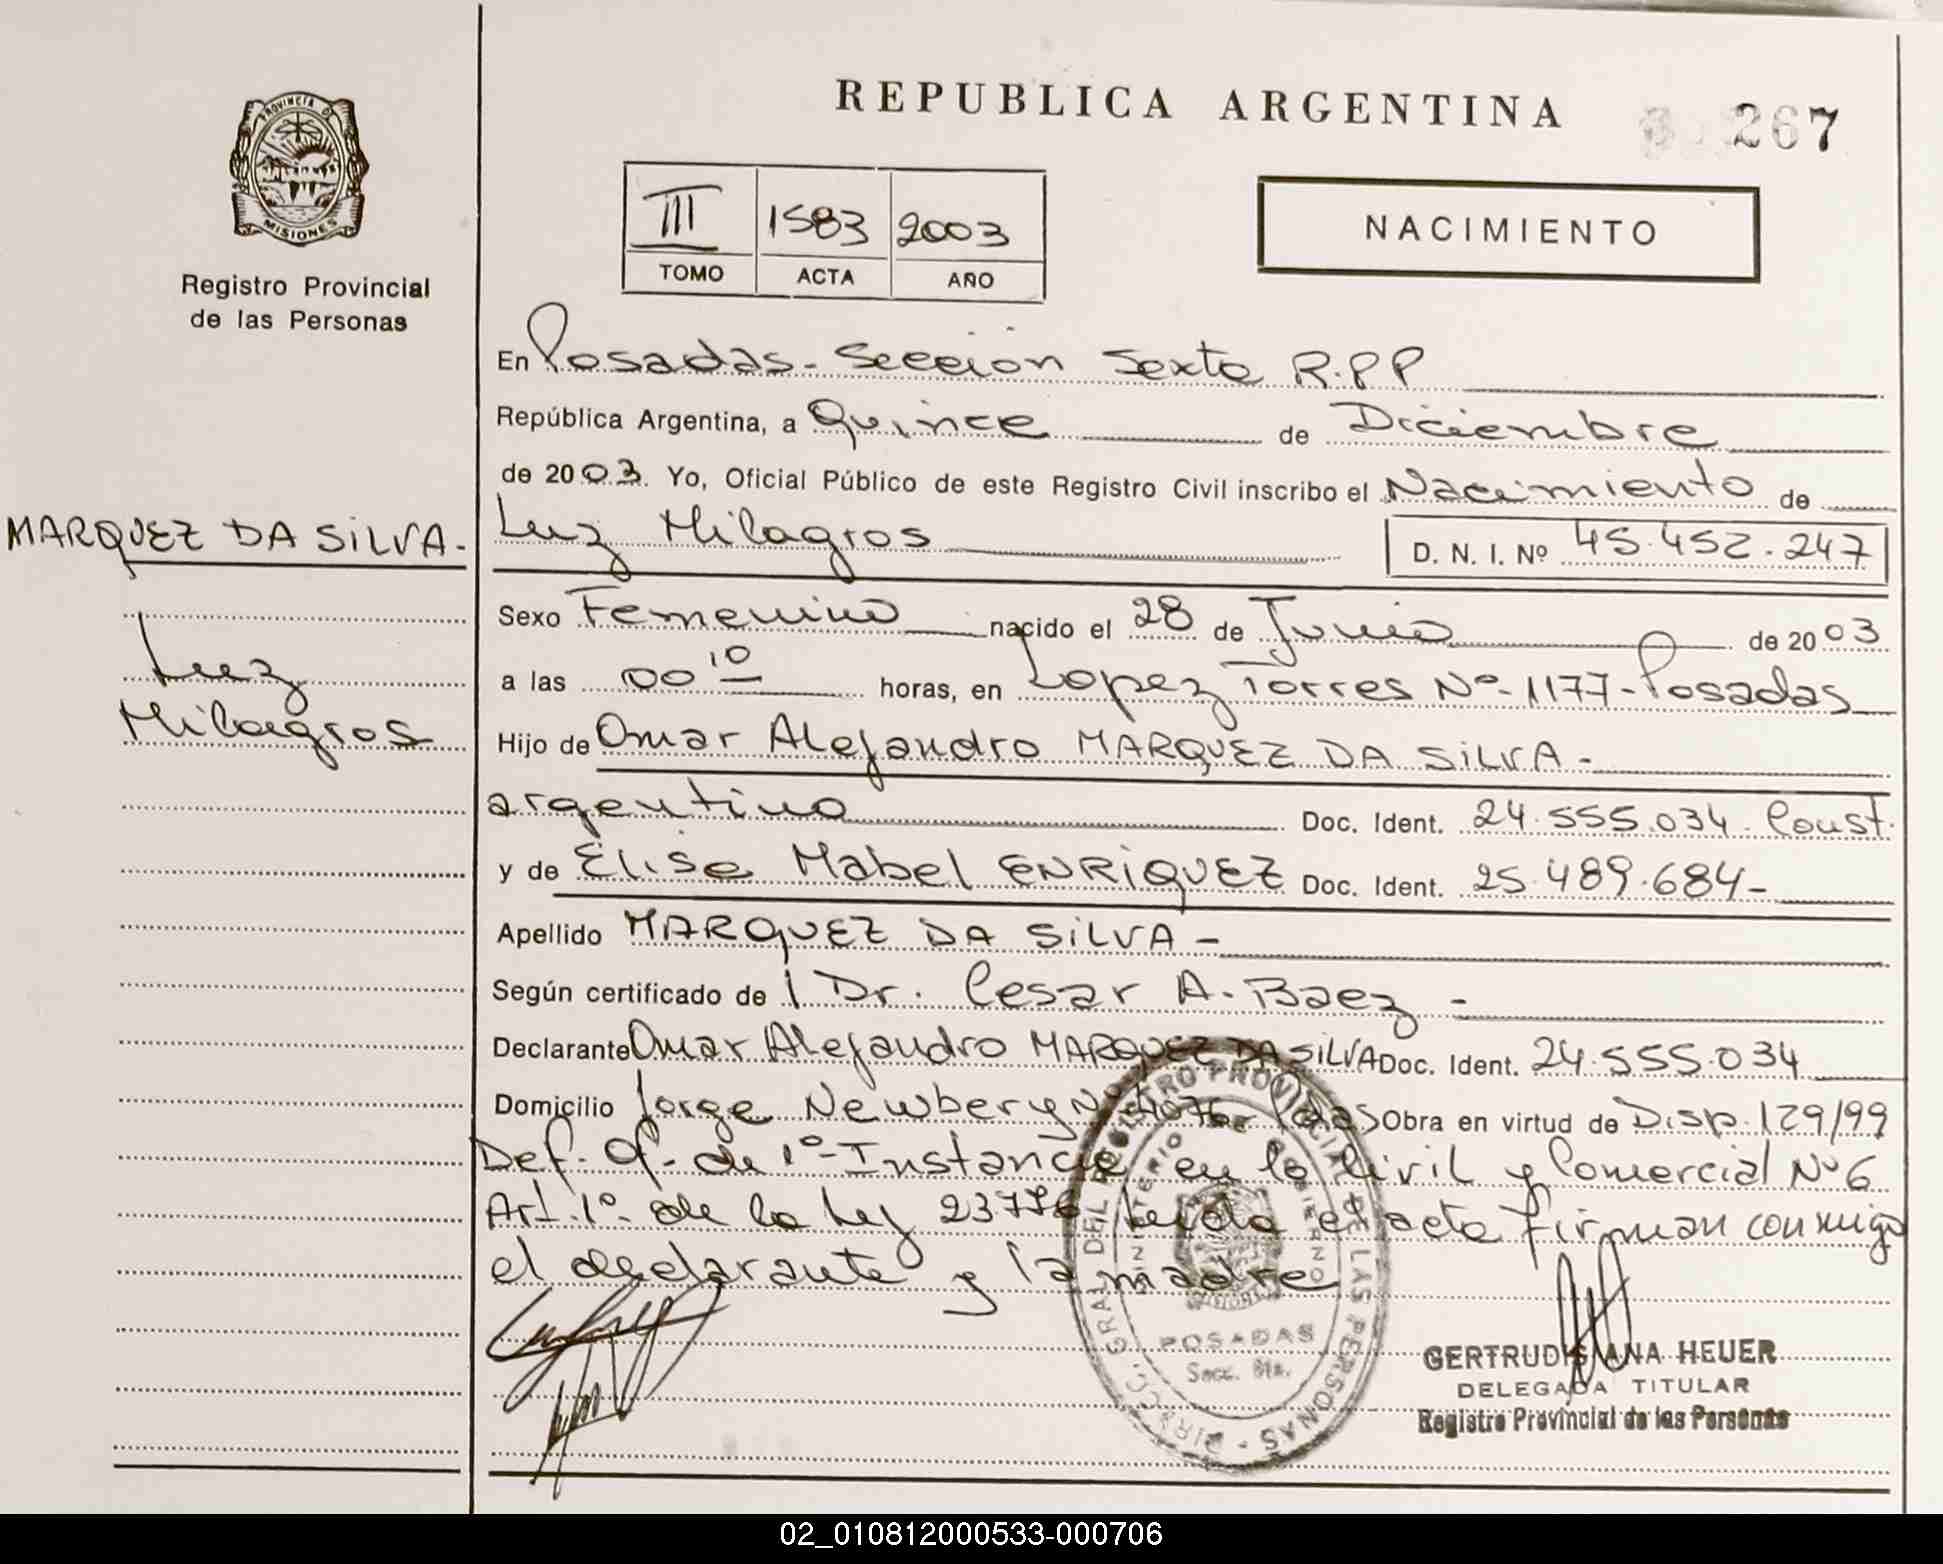 REPUBLICA ARGENTINA
267
PROVINCIA DE
MISIONES
Registro Provincial
de las Personas
III 1583 2003
TOMO ACTA AÑO
NACIMIENTO
En Posadas - Sección Sexta R.P.P
República Argentina, a Quince de Diciembre
de 2003. Yo, Oficial Público de este Registro Civil inscribo el Nacimiento de
MARQUEZ DA SILVA.-
Luz Milagros
D. N. I. Nº 45.452.247
Sexo Femenino nacido el 28 de Junio de 2003
Luz
Milagros
a las 00 10 horas, en Lopez Torres Nº-1177-Posadas
Hijo de Omar Alejandro MARQUEZ DA SILVA -
argentino Doc. Ident. 24.555.034. Const.
y de Elisa Mabel ENRIQUEZ Doc. Ident. 25.489.684-
Apellido MARQUEZ DA SILVA -
Según certificado de Dr. Cesar A. Baez -
Declarante Omar Alejandro MARQUEZ DA SILVA Doc. Ident. 24.555.034
Domicilio Jorge Newbery Nº 4076- Pdas Obra en virtud de Disp. 129/99
Def. Of. de 1º Instancia en lo Civil y Comercial Nº 6
Art. 1º de la Ley 23776 leida el acta firman conmigo
el declarante y la madre
DIRECC. GRAL DEL REGISTRO PROVINCIAL DE LAS PERSONAS
MINISTERIO DE GOBIERNO
MISIONES
POSADAS
Secc. 6ta.
GERTRUDIS ANA HEUER
DELEGADA TITULAR
Registro Provincial de las Personas
02_010812000533-000706